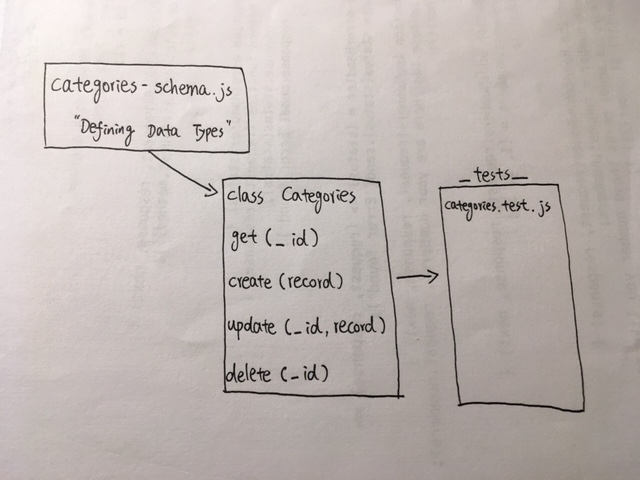 categories-schema.js
"Defining Data Types"
class Categories
get (_id)
create (record)
update (_id, record)
delete (_id)
_tests_
categories.test.js